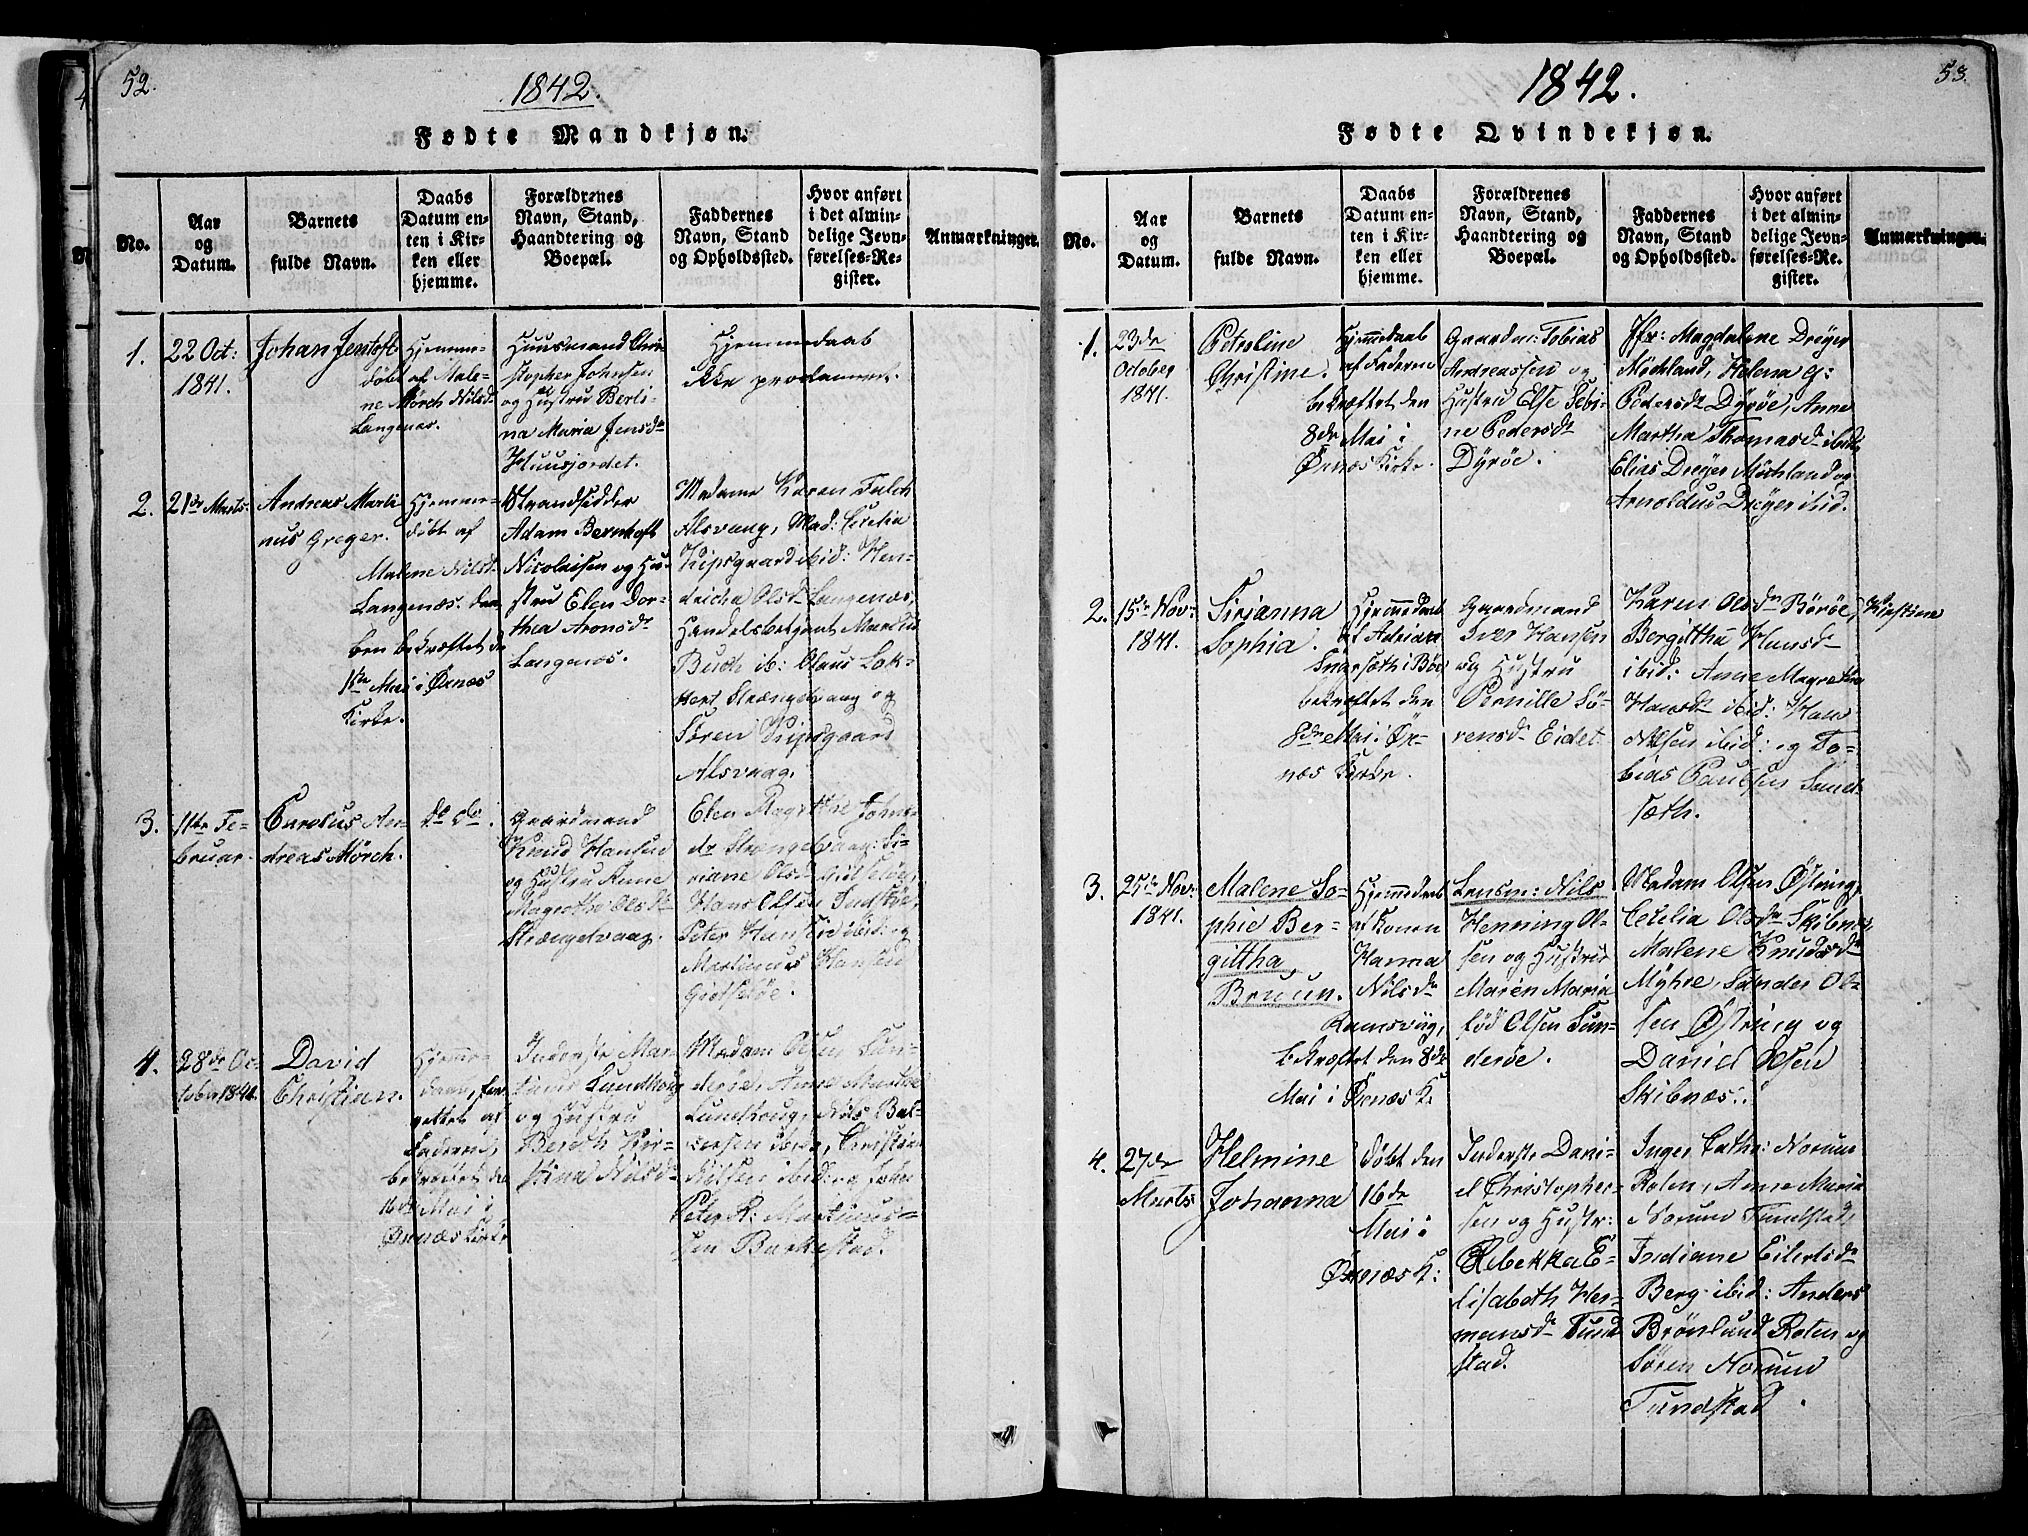 52.
1842.
Fødte Mandkjøn.
No.
Aar og Datum.
Barnets fulde Navn.
Daabs Datum enten i Kirken eller hjemme.
Forældrenes Navn, Stand, Haandtering og Boepæl.
Faddernes Navn, Stand og Opholdssted.
Hvor anført i det almindelige Jevnførelses-Register.
Anmærkninger.
1.
22 Oct:
1841.
Johan Jentoft
Hjemme-
døbt af Male-
ne Mørch Nilsd.
Langenæs.
Huusmand Chri-
stopher Johnsen
og Hustru Berli-
na Maria Jensdr
Huusjordet.
Hjemmedaab
ikke proclameret.
2.
21de Marts.
Andreas Marti-
nus Greger.
Hjemme-
døbt af
Malene Nilsd.
Langenæs. Daa-
ben bekræftet d.
1ste Mai i Øxnæs
Kirke.
Strandsidder
Adam Bernhoft
Nicolaisen og Hu-
stru Elen Dor-
thea Aronsdr
Langenæs.
Madame Karen Falch
Alsvaag, Mad: Cecelia
Kipsgaard ibid: Hen-
dricha Olsdr Langenæs,
Handelsbetjent Martin
Buch ib: Olaus Lok-
kert Strængelvaag og
Søren Kipsgaard
Alsvaag.
3.
11te Fe-
bruar.
Carolus An-
dreas Mørch.
do do.
Gaardmand
Knud Hansen
og Hustru Anne
Magrethe Olsdr
Strængelvaag.
Elen Magrethe Johns-
dr Strængelvaag: Si-
riane Olsdr
Hans Olsen
Peter Hansen ibid: og
Martinus Hansen
4.
28de Oc-
tober 1841.
David
Christian.
Hjemme-
daab, for-
rettet af
Faderen,
bekræftet den
16de Mai i
Øxnæs Kirke
Inderste Mar-
Lundhoug
og Hustru
Bereth Kir-
stina Nilsdr
Madam Olsen Sun-
derøe, Anne Martha
Lundhoug, Nils Bal-
sersen ibid:, Christian
Nilsen ibid: og Johan
Peter R: Martinus-
sen Barkestad.
53.
1842.
Fødte Qvindekjøn.
No.
Aar og Datum.
Barnets fulde Navn.
Daabs Datum enten i Kirken eller hjemme.
Forældrenes Navn, Stand, Haandtering og Boepæl.
Faddernes Navn, Stand og Opholdssted.
Hvor anført i det almindelige Jevnførelses-Register.
Anmærkninger.
1.
23de
October
1841.
Peterline
Christine.
Hjemmedaab
af Faderen
bekræftet den
8de Mai i
Øxnæs Kirke.
Gaardm: Tobias
Andreassen og
Hustru Else Sebi-
ne Pedersdr
Dyrøe.
Jfr: Magdalene Dreyer
Møchland, Helena G:
Pedersdr Dyrøe, Anne
Martha Thomasdr ibid:
Elias Dreyer Møchland og
Arnoldus Dreyer ibid.
2.
15de Nov:
1841.
Sirianna
Sophia.
Hjemmedaab
af Adriana
Ingersæth i Bøe,
bekræftet den
8de Mai i Øx-
næs Kirke.
Gaardmand
Iver Hansen
og Hustru
Pernille Sö-
rensdr Eidet.
Karen Olsdr Børøe,
Bergitthe Hansdr
ibid: Anne Magrethe
Hansdr ibid: Hans
Nilsen ibid: og To-
bias Paulsen Sand-
sæth.
Kirstine
3.
25de Nov:
1841.
Malene So-
phie Ber-
gittha
Bruun.
Hjemmedaab
af Konen
Hanna
Nilsdr
Ramsviig,
bekræftet den 8de
Mai i Øxnæs K.
Lensm: Nils
Henning Ol-
sen og Hustru
Maren Maria
fød Olsen Sun-
derøe.
Madam Olsen Østning,
Cecelia Olsdr Skibnæs,
Malene Knudsdr
Myhre, Sander Ol-
sen Østning og
David Olsen
Skibnæs.
4.
27de
Marts
Helmine
Johanna
Døbt den
16de
Mai i
Øxnæs K:
Inderste Dani-
el Christopher-
sen og Hustr:
Rebekka E-
lisabeth Her-
mansdr Tund-
stad.
Inger Cathr: Norum
Roten, Anne Maria
Norum Tundstad,
Indiane Eilertsdr
Berg ibid: Anders
Brönlund Roten og
Søren Norum
Tundstad.